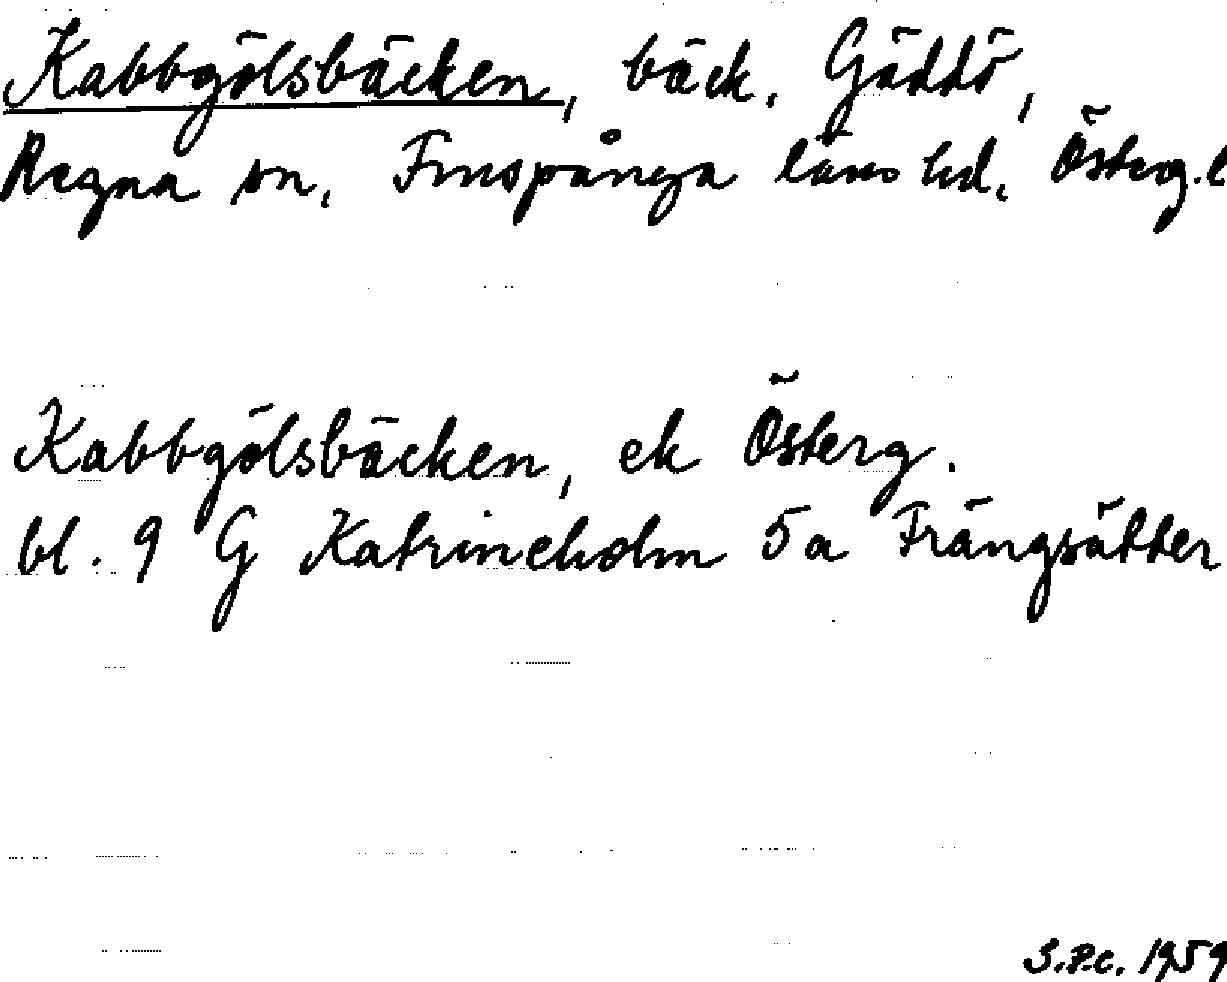 Kabbgölsbäcken, bäck, Gäddö,
Regna sn, Finspånga läns hd, Österg.l
Kabbgölsbäcken, ek Österg.
bl. 9 G Katrineholm 5a Frängsätter
S.P.C. 1959